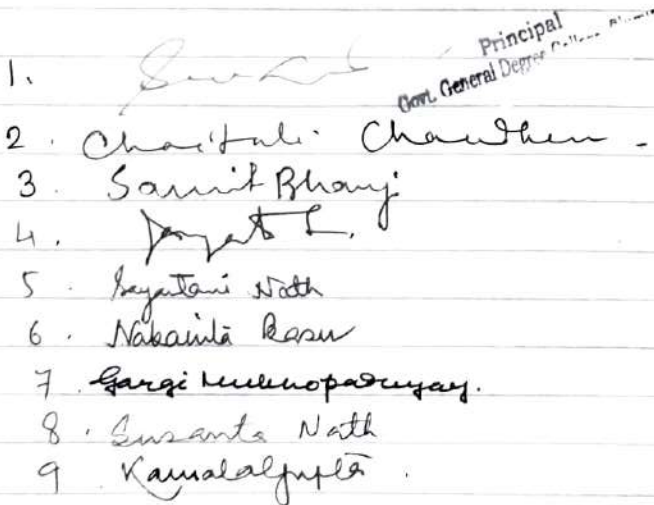 Principal
Govt. General Degree College
1.
2. Chaitali Chaudhuri -
3. Samit Bhanji
4.
5. Sayantani Nath
6. Nabamita Basu
7. Gargi Mukhopadhyay.
8. Susanta Nath
9 Kamalalgupta.